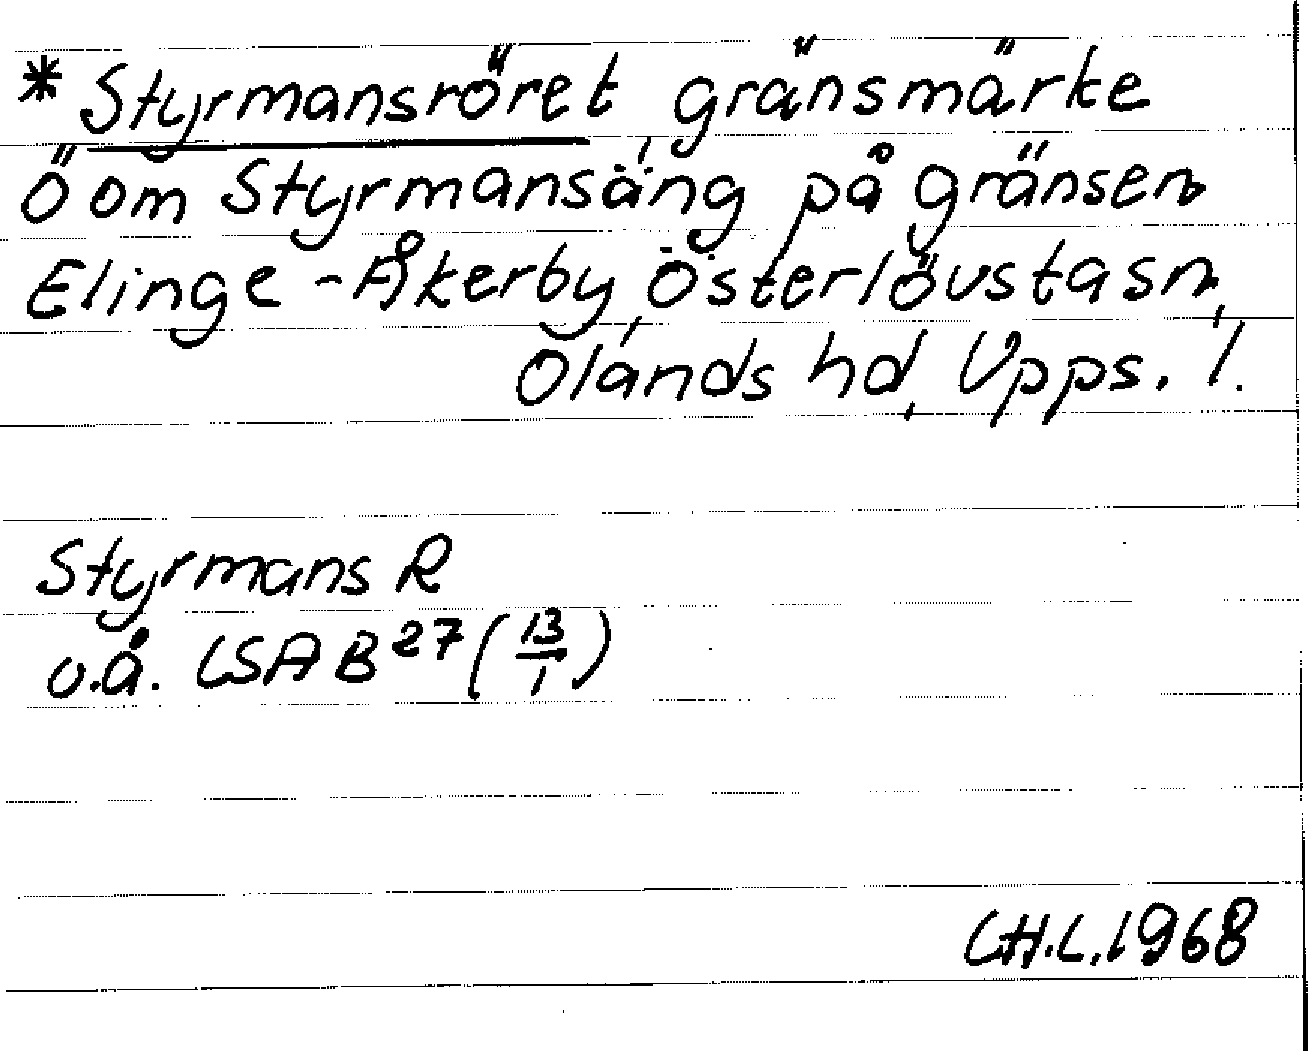 * Styrmansröret, gränsmärke
Ö om Styrmansäng på gränsen
Elinge - Åkerby, Österlövsta sn,
Olands hd, Upps. l.
Styrmans R
u.å. LSA B 27 (13/1)
C.H.L. 1968